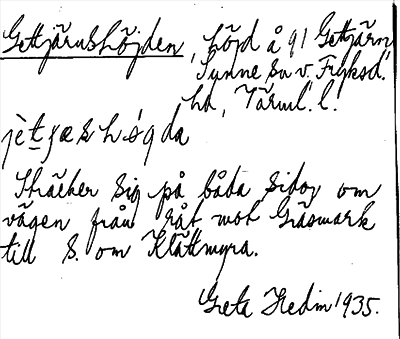 Gettjärnshöjden, höjd å 91 Gettjärn
Sunne sn v. Fryksd.
hd, Värml. l.
jètjæshǿgda
Sträcker sig på båda sidor om
vägen från råt mot Gräsmark
till S. om Klättmyra.
Greta Hedin 1935.